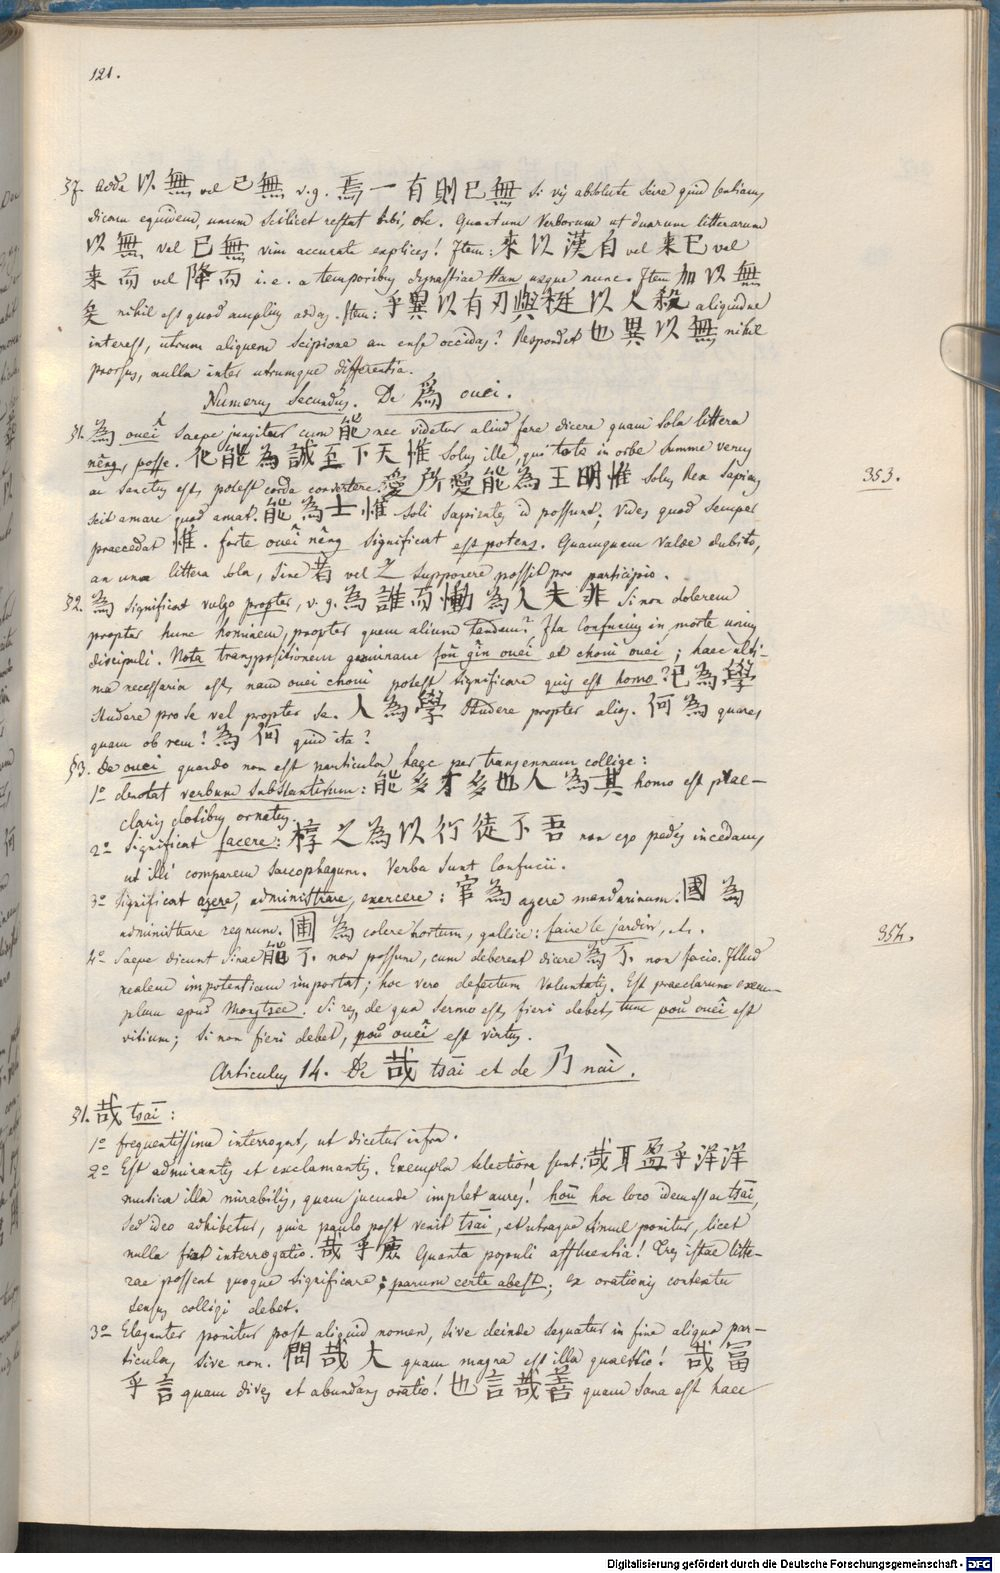 121.
§7. Adde 以 無 vel 已 無 v.g. 焉 一 有 則 已 無 Si vis absolute scire quid sentiam,
dicam equidem, unum scilicet restat tibi, etc. Quantum verborum ut duarum litterarum
以 無 vel 已 無 vim accurate explices! Item: 來 以 漢 自 vel 来 已 vel
来 而 vel 降 而 i.e. a temporibus dynastiae Han usque nunc. Item 加 以 無
矣 nihil est quod amplius addas. Item: 乎 異 以 有 刃 與 梃 以 人 殺 aliquidne
interest, utrum aliquem scipione an ense occidas? Respondet 也 異 以 無 nihil
prorsus, nulla inter utrumque differentia.
Numerus Secundus. De 爲 ouei.
§1. 為 oueî saepe jungitur cum 能 nec videtur aliud fere dicere quam sola littera
nêng, posse. 化 能 為 誠 至 下 天 惟 Solus ille, qui toto in orbe summe verus
ac sanctus est, potest corda convertere. 愛 所 愛 能 為 王 明 惟 Solus Rex Sapiens
scit amare quod amat. 能 為 士 惟 Soli Sapientes id possunt; Vides quod semper
praecedat 惟. Forte oueî nêng significat est potens. Quamquam valde dubito,
an una littera sola, sine 者 vel 之 supponere possit pro participio.
§2. 為 significat vulgo propter, v.g. 為 誰 而 慟 為 人 夫 非 Si non dolerem
propter hunc hominem, propter quem alium tandem? Ita Confucius in morte unius
discipuli. Nota transpositionem geminam foû gîn ouei et choui ouei; haec ulti-
ma necessaria est, nam ouei choui potest significare quis est homo? 己 為 學
studere pro se vel propter se. 人 為 學 studere propter alios. 何 為 quare,
quam ob rem? 為 何 quid ita?
§3. De ouei quando non est particula haec per transennam collige:
1º denotat verbum substantivum: 能 多 才 多 也 人 為 其 homo est prae-
claris dotibus ornatus.
2º Significat facere: 椁 之 為 以 行 徒 不 吾 non ego pedes incedam,
ut illi comparem sarcophagum. Verba sunt Confucii.
3º Significat agere, administrare, exercere: 官 為 agere mandarinum. 國 為
administrare regnum. 圃 為 colere hortum, gallice: faire le jardin, etc.
4º Saepe dicunt Sinae 能 不 non possum, cum deberent dicere 為 不 non facio. Illud
realem impotentiam importat; hoc vero defectum voluntatis. Est praeclarum exem-
plum apud Mengtsee. Si res, de qua sermo est, fieri debet, tum poŭ oueî est
vitium; si non fieri debet, poŭ oueî est virtus.
Articulus 14. De 哉 tsāi et de 乃 nài.
§1. 哉 tsāi:
1º frequentissime interrogat, ut dicetur infra.
2º Est admirantis et exclamantis. Exempla selectiora sunt: 哉 耳 盈 乎 洋 洋
musica illa mirabilis, quam jucunde implet aures! hoû hoc loco idem est ac tsāi,
sed ideo adhibetur, quia paulo post venit tsāi, et utraque simul ponitur, licet
nulla fiat interrogatio. 哉 乎 庶 Quanta populi affluentia! Tres istae litte-
rae possent quoque significare: parum certe abest; ex orationis contextu
sensus colligi debet.
3º Eleganter ponitur post aliquid nomen, sive deinde sequatur in fine aliqua par-
ticula, sive non. 問 哉 大 quam magna est illa quaestio! 哉 富
乎 言 quam dives et abundans oratio! 也 言 哉 善 quam sana est haec
353.
354.
Digitalisierung gefördert durch die Deutsche Forschungsgemeinschaft - DFG